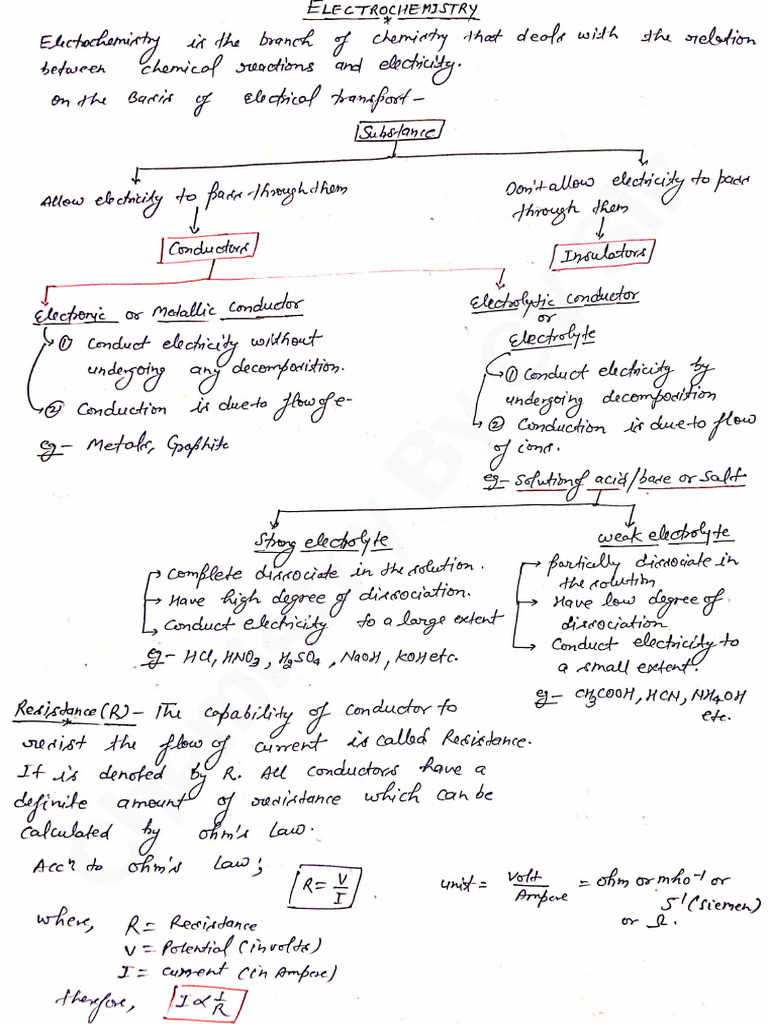 ELECTROCHEMISTRY
Electochemistry is the branch of chemistry that deals with the relation
between chemical reactions and electricity.
On the Basis of electrical transport-
Substance
Allow electricity to pass through them
Don't allow electricity to pass
through them
Conductors
Insulators
Electronic or Metallic Conductor
① Conduct electricity without
undergoing any decomposition.
② Conduction is due to flow of e-
eg- Metals, Graphite
Electrolytic conductor
or
Electrolyte
① Conduct electricity by
undergoing decomposition
② Conduction is due to flow
of ions.
eg- Solution of acid/base or Salt
Strong electrolyte
Complete dissociate in the solution.
Have high degree of dissociation.
Conduct electricity to a large extent
eg- HCl, HNO3, H2SO4, NaOH, KOH etc.
weak electrolyte
partially dissociate in
the solution
Have low degree of
dissociation
Conduct electricity to
a small extent.
eg- CH3COOH, HCN, NH4OH
etc.
Resistance(R)- The capability of conductor to
resist the flow of current is called Resistance.
It is denoted by R. All conductors have a
definite amount of resistance which can be
calculated by ohm's Law.
Accn to ohm's Law;
R = V/I
unit = Volt/Ampere = ohm or mho-1 or
S-1 (Siemen)
or Ω.
where, R = Resistance
V = Potential (in volts)
I = current (in Ampere)
therefore, I ∝ 1/R
Chemistry By